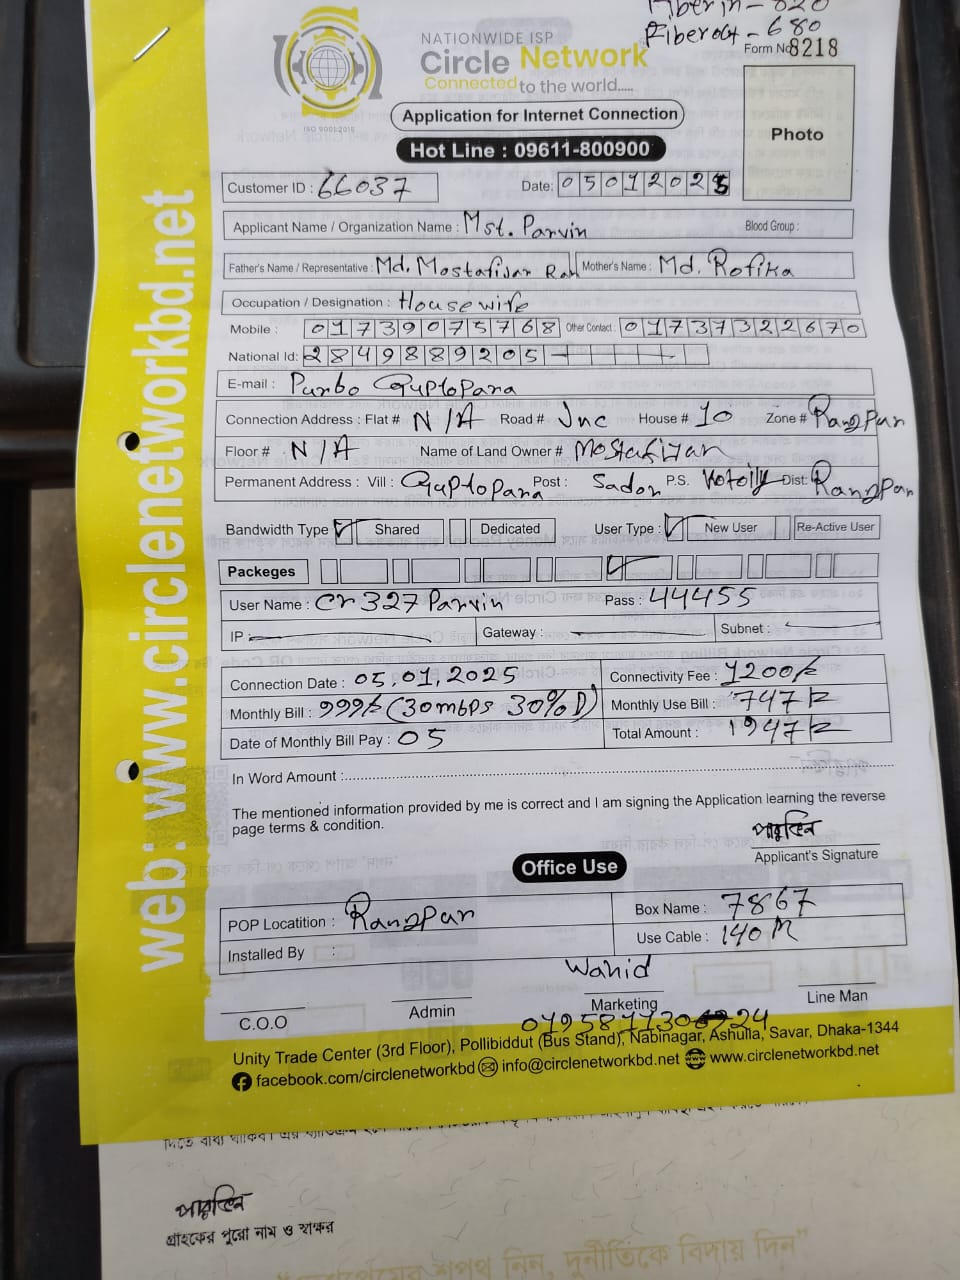 Fiber in - 820
Fiber out - 680
Form No 8218
NATIONWIDE ISP
Circle Network
Connected to the world.....
ISO 9001:2015
Application for Internet Connection
Hot Line : 09611-800900
Photo
Customer ID : 66037 Date: 05012025
Applicant Name / Organization Name : Mst. Parvin Blood Group :
Father's Name / Representative : Md. Mostafijar Rah Mother's Name : Md. Rofika
Occupation / Designation : Housewife
Mobile : 01739075768 Other Contact : 01737322670
National Id: 2849889205
E-mail : Purbo Guptopara
Connection Address : Flat # N/A Road # Jnc House # 10 Zone # Rangpur
Floor # N/A Name of Land Owner # Mostafizar
Permanent Address : Vill : Guptopara Post : Sador P.S. Kotoily Dist: Rangpur
Bandwidth Type Shared Dedicated User Type : New User Re-Active User
Packeges
User Name : Cn327Parvin Pass : 44455
IP : Gateway : Subnet :
Connection Date : 05.01.2025 Connectivity Fee : 1200/-
Monthly Bill : 999/- (30mbps 30% D) Monthly Use Bill : 747/-
Date of Monthly Bill Pay : 05 Total Amount : 1947/-
In Word Amount :
The mentioned information provided by me is correct and I am signing the Application learning the reverse
page terms & condition.
পারভিন
Applicant's Signature
Office Use
POP Locatition : Rangpur Box Name : 7867
Installed By : Use Cable : 140 M
Wahid
C.O.O Admin Marketing Line Man
Unity Trade Center (3rd Floor), Pollibiddut (Bus Stand), Nabinagar, Ashulia, Savar, Dhaka-1344
facebook.com/circlenetworkbd info@circlenetworkbd.net www.circlenetworkbd.net
web: www.circlenetworkbd.net
পারভিন
গ্রাহকের পুরো নাম ও স্বাক্ষর
দুর্নীতিকে বিদায় দিন”